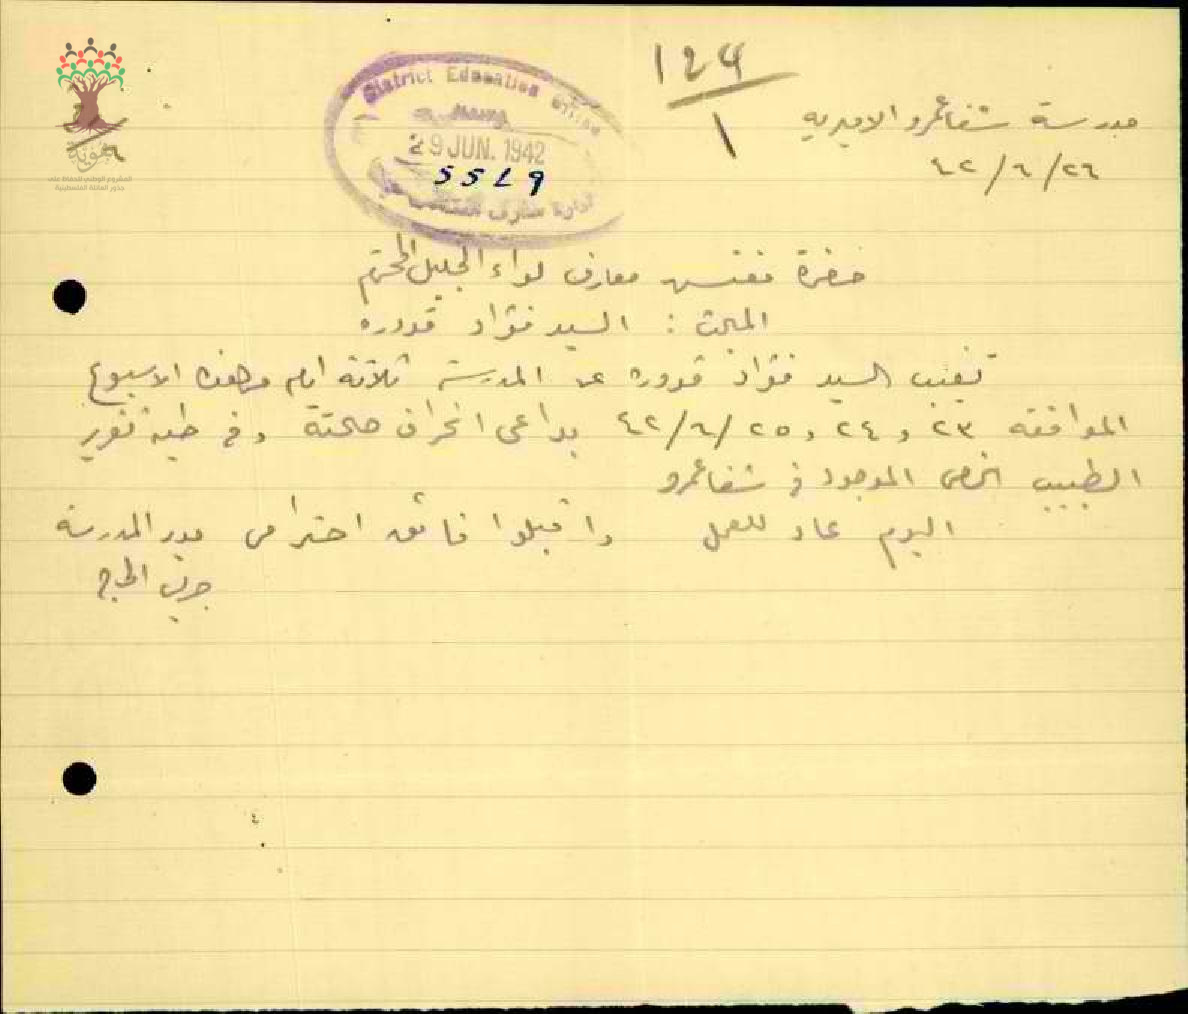 129
1
مدرسة شفاعمرو الاميرية
٤٢/٦/٢٦
District Education Office
29 JUN. 1942
حضرة مفتش معارف لواء الجليل المحترم
المبحث : السيد فؤاد قدوره
تغيب السيد فؤاد قدورة عن المدرسة ثلاثة ايام من هذه الاسبوع
الموافقة ٢٣ و ٢٤ و ٤٢/٦/٢٥ بداعي انحراف صحته وفي طيه تقرير
الطبيب الخصوصي الموجود في شفاعمرو
اليوم عاد للعمل واقبلوا فائق احترامي مدير المدرسة
المشروع الوطني للحفاظ على
جذور العائلة الفلسطينية